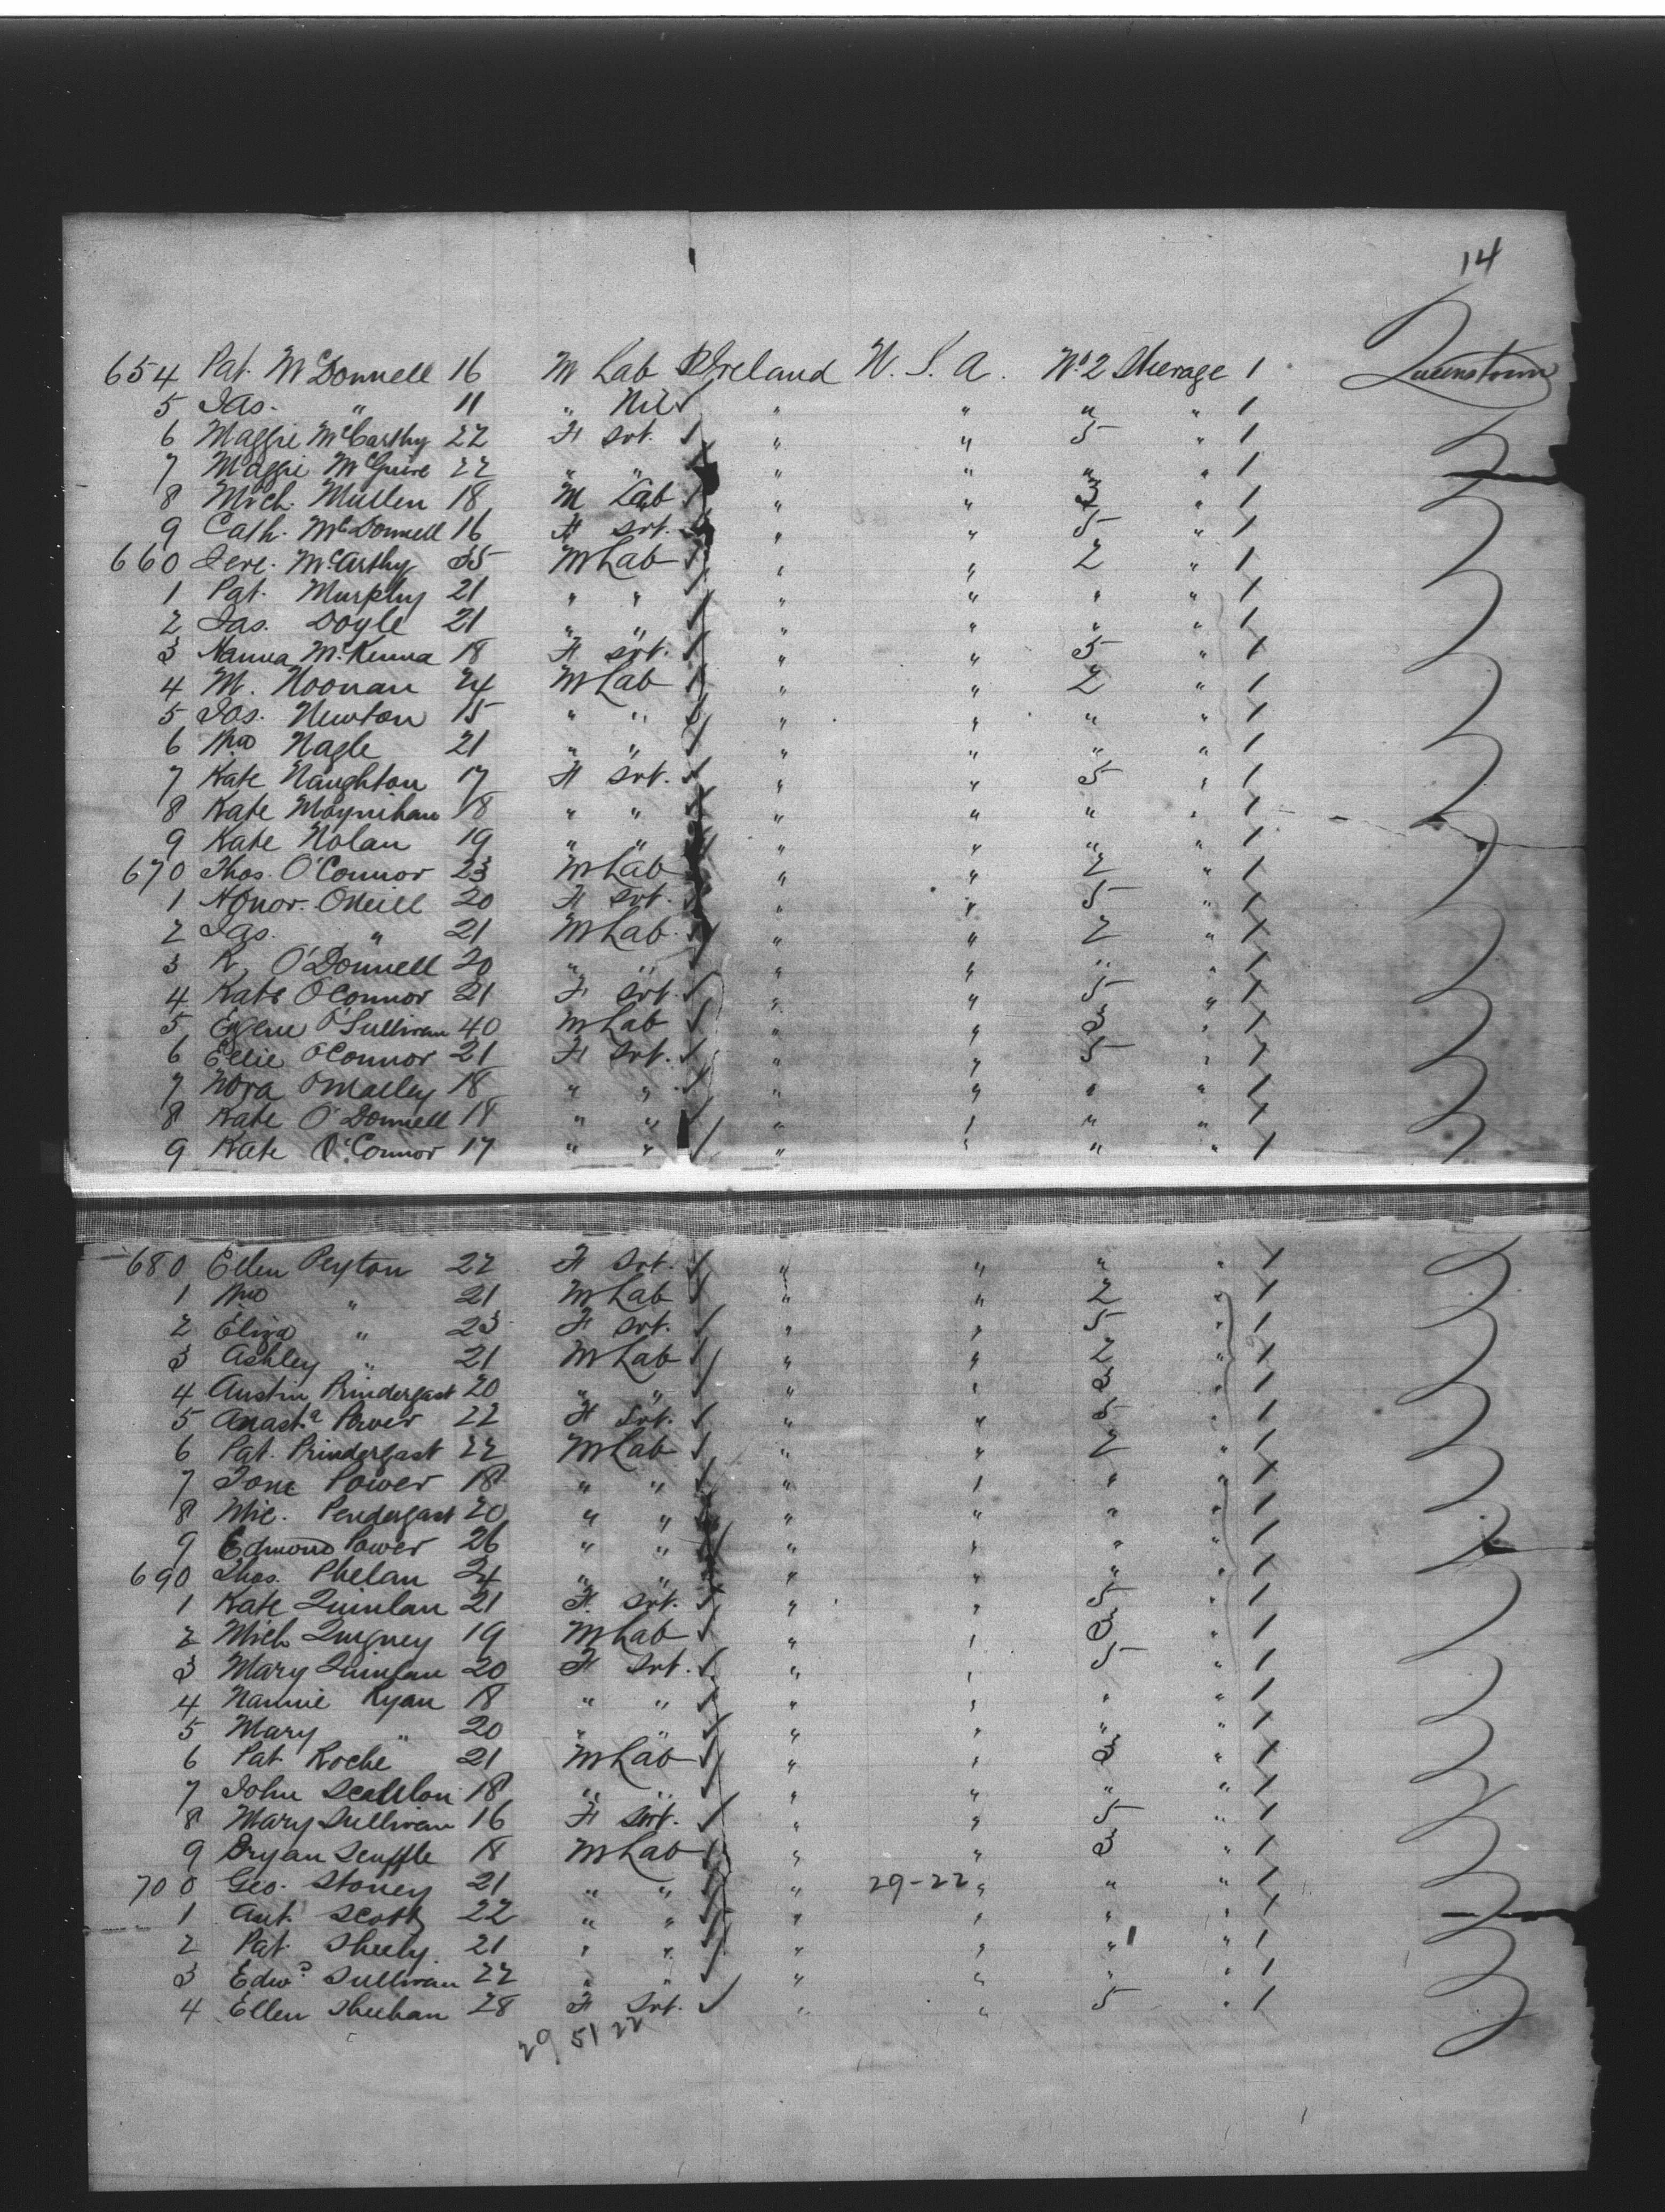 14
654 Pat. McDonnell 16 M Lab Ireland U. S. A. No. 2 Steerage 1 Queenstown
5 Jas. " 11 " Nil " " " " 1
6 Maggie McCarthy 22 F Svt. " " 5 " 1
7 Maggie McGuire 22 " " " " " " 1
8 Mich. Mullen 18 M Lab " " 3 " 1
9 Cath. McDonnell 16 F Svt. " " 5 " 1
660 Jere. McCarthy 35 M Lab " " 2 " 1
1 Pat. Murphy 21 " " " " " " 1
2 Jas. Doyle 21 " " " " " " 1
3 Nanna McKenna 18 F Svt. " " 5 " 1
4 M. Noonan 24 M Lab " " 2 " 1
5 Jas. Newton 15 " " " " " " 1
6 Nagle 21 " " " " " " 1
7 Kate Naughton 17 F Svt. " " 5 " 1
8 Kate Moynihan 18 " " " " " " 1
9 Kate Nolan 19 " " " " " " 1
670 Thos. O'Connor 23 M Lab " " 2 " 1
1 Honor. O'Neill 20 F Svt. " " 5 " 1
2 Jas. " 21 M Lab " " 2 " 1
3 K. O'Donnell 20 " " " " " " 1
4 Kate O'Connor 21 F Svt. " " 5 " 1
5 O'Sullivan 40 M Lab " " 3 " 1
6 Ellie O'Connor 21 F Svt. " " 5 " 1
7 Nora O'Malley 18 " " " " " " 1
8 Kate O'Donnell 18 " " " " " " 1
9 Kate O'Connor 17 " " " " " " 1
680 Ellen Peyton 22 F Svt. " " " " 1
1 " 21 M Lab " " 2 " 1
2 Eliza " 23 F Svt. " " 5 " 1
3 Ashley " 21 M Lab " " 2 " 1
4 Austin Prindergast 20 " " " " 3 " 1
5 Anasta Power 22 F Svt. " " 5 " 1
6 Pat. Prindergast 22 M Lab " " 2 " 1
7 Power 18 " " " " " " 1
8 Mic. Pendergast 20 " " " " " " 1
9 Edmond Power 26 " " " " " " 1
690 Thos. Phelan 24 " " " " " " 1
1 Kate Quinlan 21 F. Svt. " " 5 " 1
2 Mich Quigney 19 M Lab " " 3 " 1
3 Mary Quinlan 20 F Svt. " " 5 " 1
4 Nannie Ryan 18 " " " " " " 1
5 Mary " 20 " " " " " " 1
6 Pat Roche 21 M Lab " " 3 " 1
7 John Scanlon 18 " " " " " " 1
8 Mary Sullivan 16 F Svt. " " 5 " 1
9 Bryan Scuffle 18 M Lab " " 3 " 1
700 Geo. Stoney 21 " " " 29-22 " " " 1
1 Ant. Scott 22 " " " " " " 1
2 Pat. Sheehy 21 " " " " " " 1
3 Edwd Sullivan 22 " " " " " " 1
4 Ellen Sheehan 28 F Svt. " " 5 " 1
29 51 22